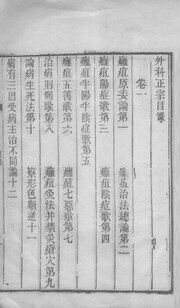 外科正宗目錄
卷一
癰疽原委論第一
癰疽治法總論第二
癰疽陽症歌第三
癰疽陰症歌第四
癰疽半陽半陰症歌第五
癰疽五善歌第六
癰疽七惡歌第七
治病則例歌第八
癰疽灸法并禁灸瘡穴第九
論病生死法第十
察形色順逆十一
病有三因受病主治不同論十二